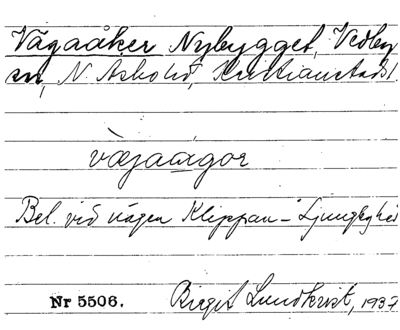 Vägaåker Nybygget, Vedby
sn, N. Åsbohd, Kristianstads l.
vægaágor
Bel. vid vägen Klippan - Ljungbyhed
Nr 5506. Birgit Lundkvist, 1937